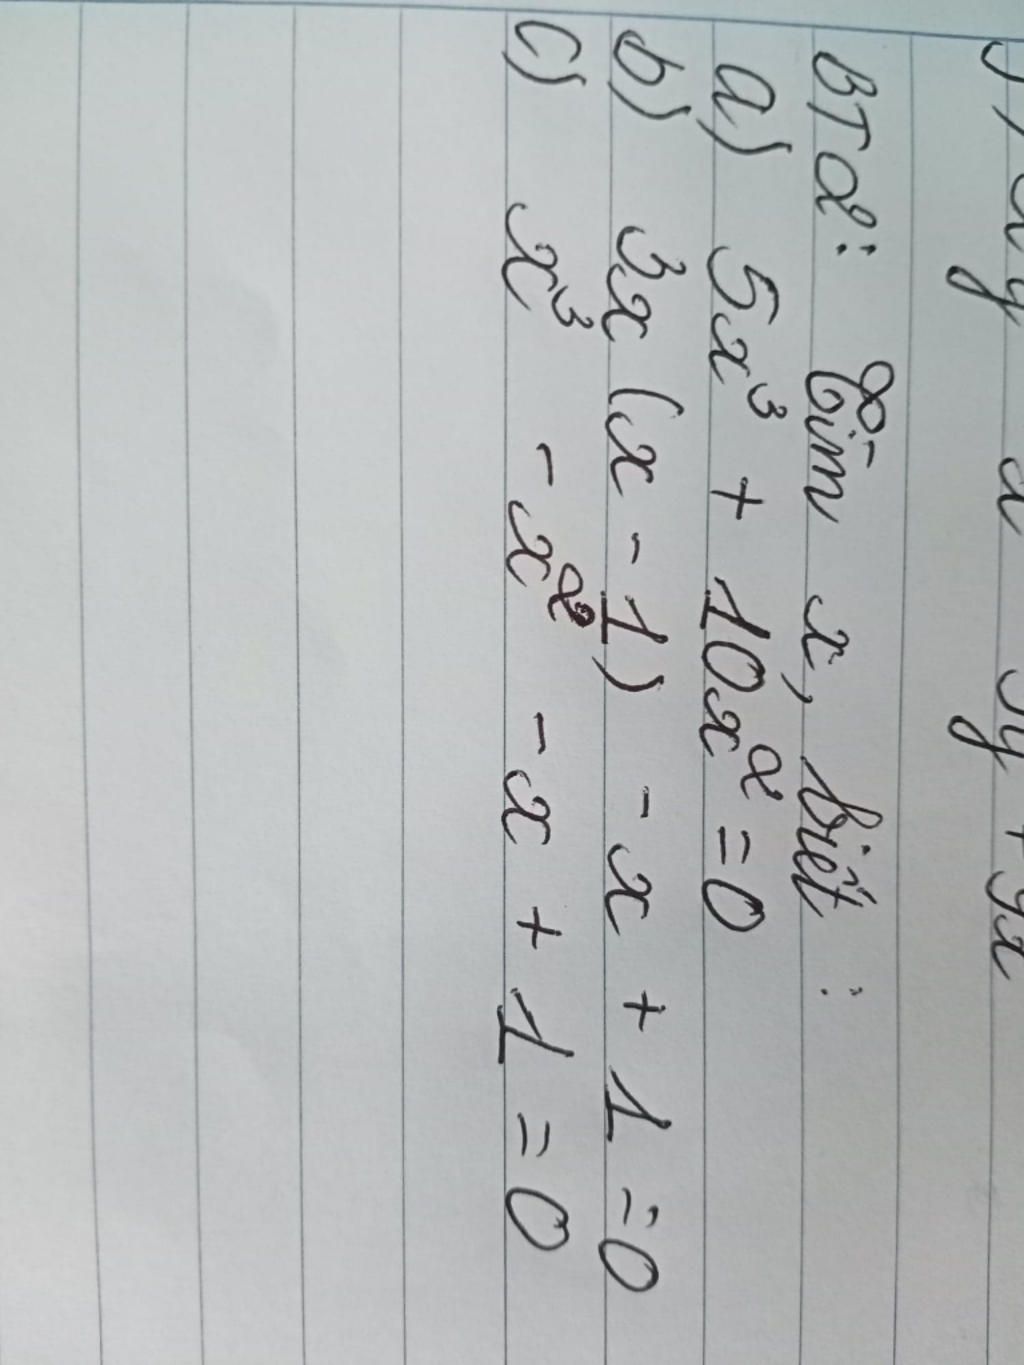 BT2: Tìm x, biết :
a) 5x³ + 10x² = 0
b) 3x (x - 1) - x + 1 = 0
c) x³ - x² - x + 1 = 0